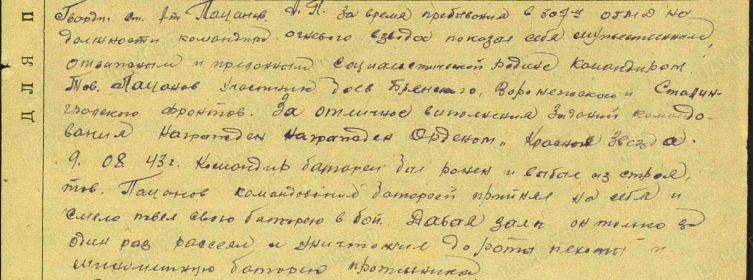 Гвардии ст. л-т Пацанов А.П. За время пребывания в 307м ОГМД на
должности командира огневого взвода показал себя мужественным,
отважным и преданным социалистической родине командиром.
Тов. Пацанов участник боев Брянского, Воронежского и Сталин-
градского фронтов. За отличное выполнения заданий командо-
вания награжден награжден Орденом „Красная Звезда.
9.08.43г. командир батареи был ранен и выбыл из строя,
тов. Пацанов командование батареей принял на себя и
смело повел свою батарею в бой. Давая залп он только за
один раз рассеял и уничтожил до роты пехоты и
минометную батарею противника
ДЛЯ П